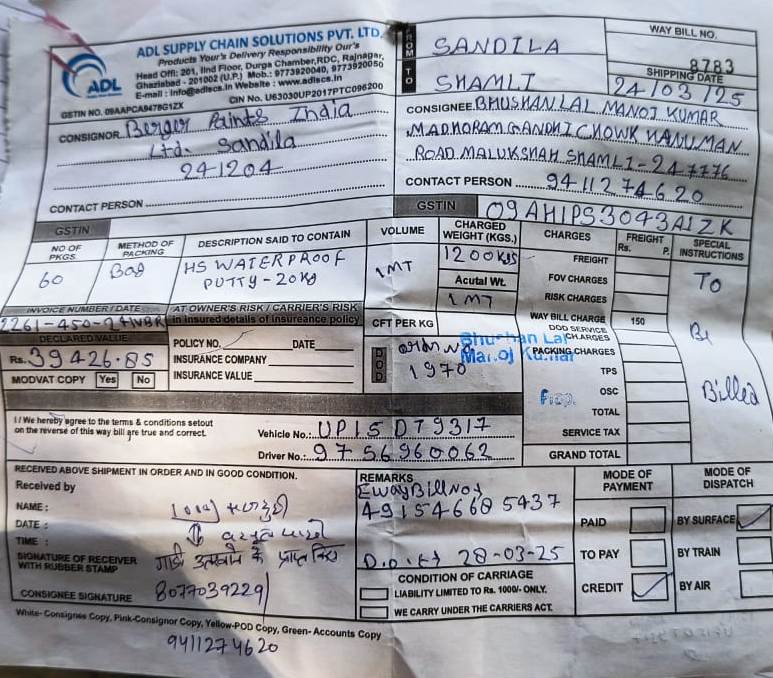 ADL SUPPLY CHAIN SOLUTIONS PVT. LTD.
Products Your's Delivery Responsibility Our's
Head Off: 201, IInd Floor, Durga Chamber, RDC, Rajnagar,
Ghaziabad - 201002 (U.P.) Mob.: 9773920040, 9773920050
E-mail : info@adlscs.in Website : www.adlscs.in
ADL
CIN No. U63030UP2017PTC096200
GSTIN NO. 09AAPCA9478G1ZX
CONSIGNOR Berger Paints India
Ltd. Sandila
241204
CONTACT PERSON
FROM SANDILA
TO SHAMLI
WAY BILL NO.
8783
SHIPPING DATE
24/03/25
CONSIGNEE BHUSHAN LAL MANOJ KUMAR
MADHORAM GANDHI CHOWK HANUMAN
ROAD MALUKSHAH SHAMLI-247776
CONTACT PERSON 9411274620
GSTIN 09AHIPS3043A1ZK
GSTIN
NO OF PKGS.
METHOD OF PACKING
DESCRIPTION SAID TO CONTAIN
VOLUME
CHARGED WEIGHT (KGS.)
CHARGES
FREIGHT
Rs. P.
SPECIAL INSTRUCTIONS
60
Bag
HS WATERPROOF
PUTTY-20KG
1MT
1200KGS
Acutal Wt.
1 MT
FREIGHT
FOV CHARGES
RISK CHARGES
WAY BILL CHARGE 150
DOD SERVICE CHARGES
PACKING CHARGES
TPS
OSC
TOTAL
SERVICE TAX
GRAND TOTAL
To
Be
Billed
INVOICE NUMBER / DATE
AT OWNER'S RISK / CARRIER'S RISK
in insured details of insureance policy
CFT PER KG
DECLARED VALUE
Rs. 39426.85
MODVAT COPY Yes No
POLICY NO. DATE
INSURANCE COMPANY
INSURANCE VALUE
DOD
1970
Bhushan Lal
Manoj Kumar
Prop.
I / We hereby agree to the terms & conditions setout
on the reverse of this way bill are true and correct.
Vehicle No.: UP15DT9317
Driver No.: 9756960062
RECEIVED ABOVE SHIPMENT IN ORDER AND IN GOOD CONDITION.
Received by
NAME :
DATE :
TIME :
SIGNATURE OF RECEIVER
WITH RUBBER STAMP
CONSIGNEE SIGNATURE 8077039229
REMARKS
EwayBill No,
491546685437
28-03-25
CONDITION OF CARRIAGE
LIABILITY LIMITED TO Rs. 1000/- ONLY.
WE CARRY UNDER THE CARRIERS ACT.
MODE OF PAYMENT
PAID
TO PAY
CREDIT
MODE OF DISPATCH
BY SURFACE
BY TRAIN
BY AIR
White- Consignee Copy, Pink-Consignor Copy, Yellow-POD Copy, Green- Accounts Copy
9411274620